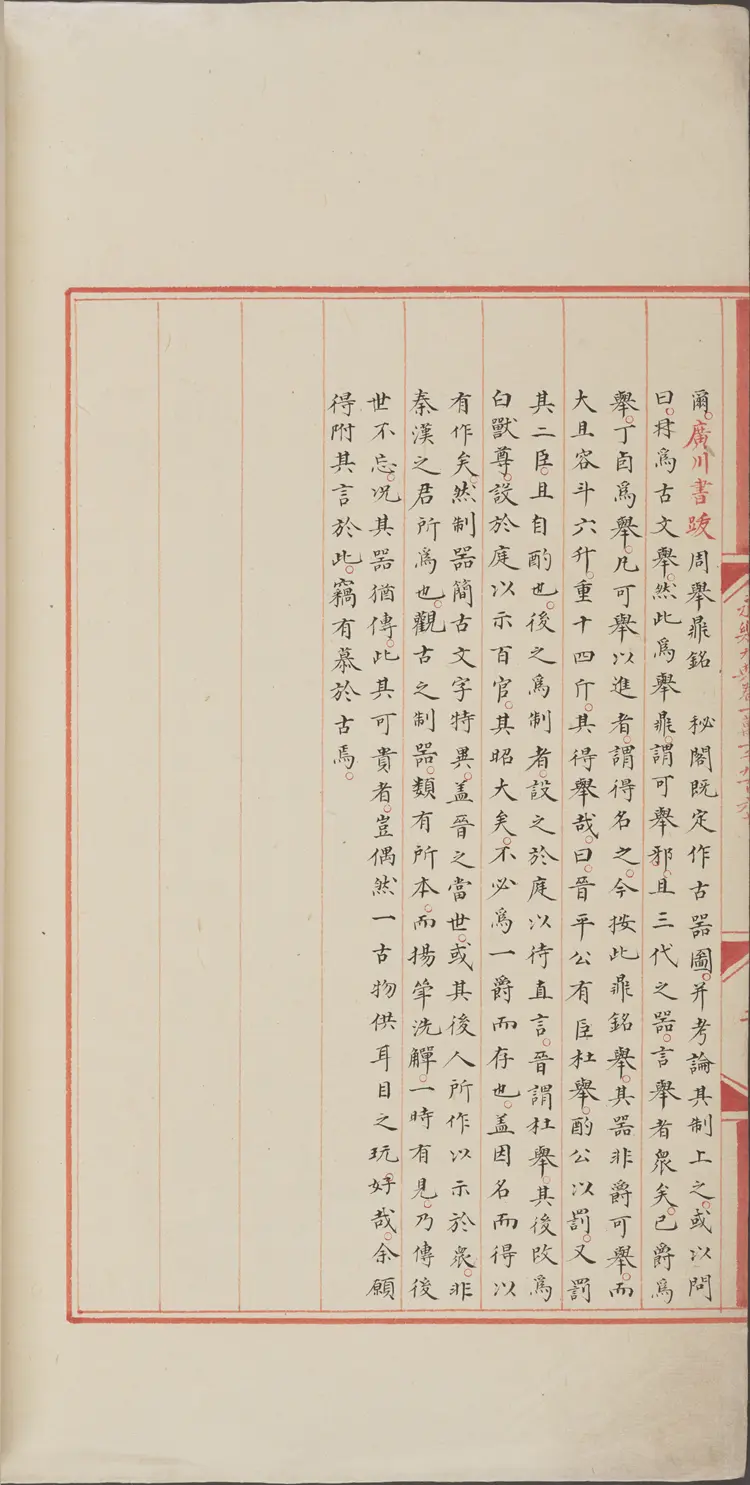 爾。廣川書跋周舉鼎銘　秘閣既定作古器圖。并考論其制上之。或以問
曰。𢪙爲古文舉。然此爲舉鼎。謂可舉邪。且三代之器。言舉者衆矣。已爵爲
舉。丁卣爲舉。凡可舉以進者。謂得名之。今按此鼎銘舉。其器非爵可舉。而
大且容斗六升。重十四斤。其得舉哉。曰。晉平公有臣杜舉。酌公以罰。又罰
其二臣。且自酌也。後之爲制者。設之於庭以待直言。晉謂杜舉。其後改爲
白獸尊。設於庭以示百官。其昭大矣。不必爲一爵而存也。盖因名而得以
有作矣。然制器簡古文字特異。盖晉之當世。或其後人所作以示於衆。非
秦漢之君所爲也。觀古之制器。類有所本。而揚觶洗觶。一時有見。乃傳後
世不忘。况其器猶傳。此其可貴者。豈偶然一古物供耳目之玩好哉。余願
得附其言於此。竊有慕於古焉。